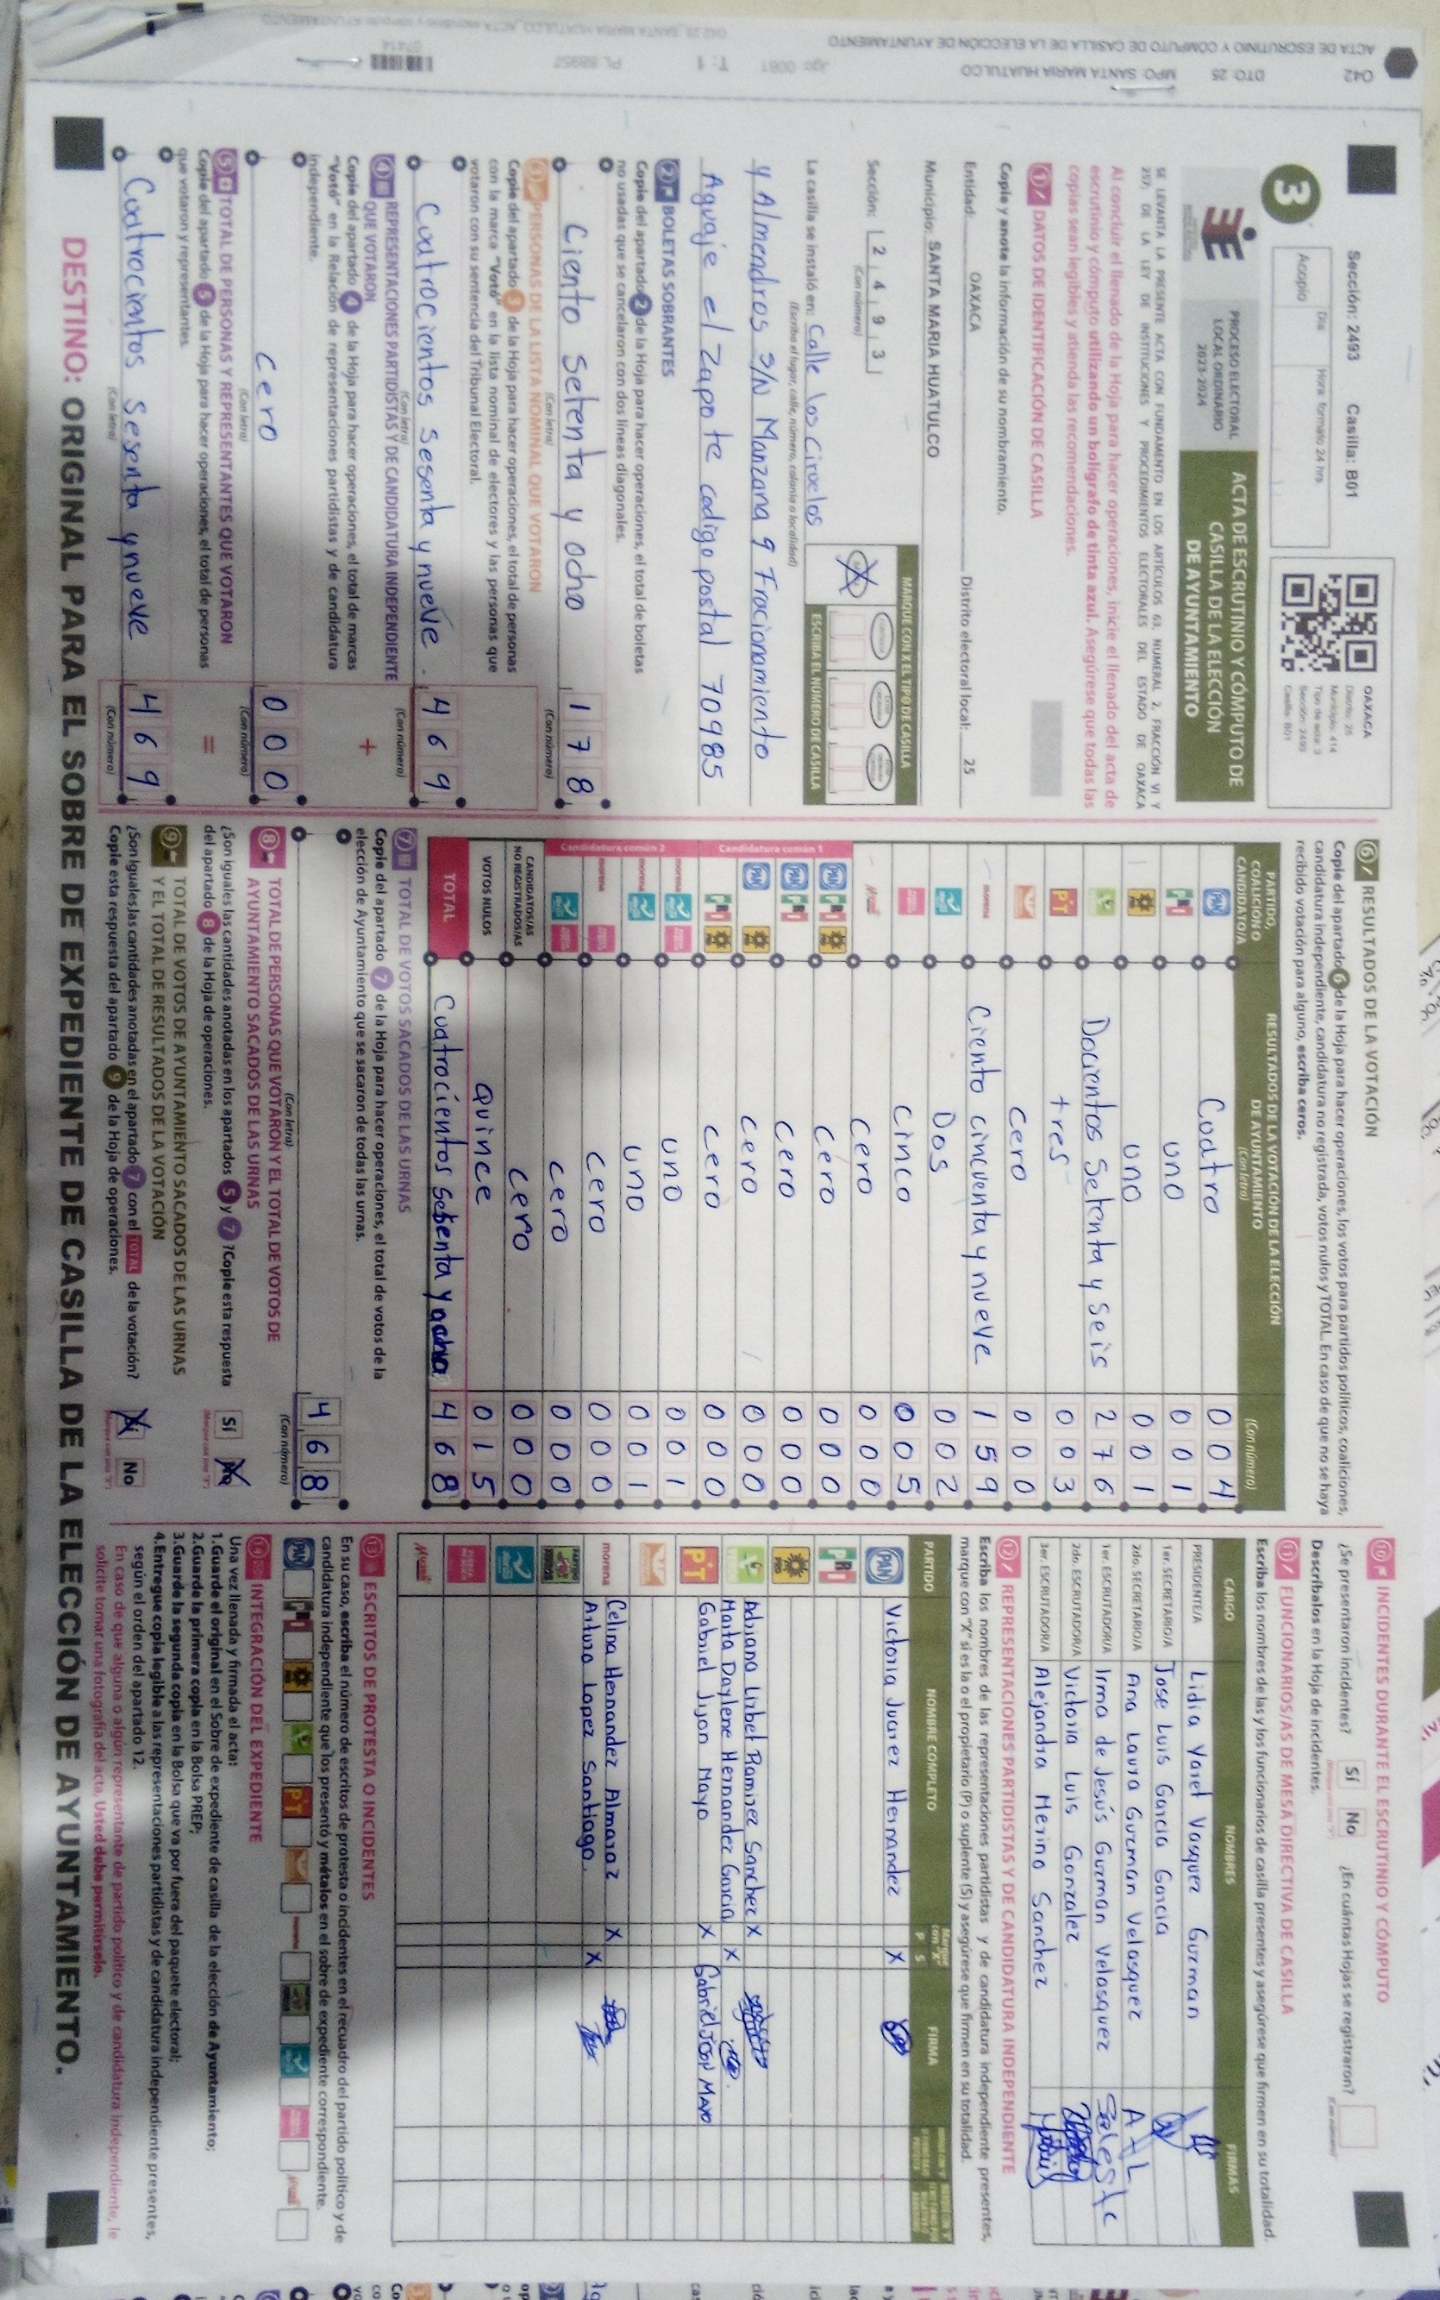 042 DTO: 25 MPO: SANTA MARIA HUATULCO
ACTA DE ESCRUTINIO Y CÓMPUTO DE CASILLA DE LA ELECCIÓN DE AYUNTAMIENTO
Sección: 2493 Casilla: B01
3
Acopio
Día
Hora formato 24 hrs.
OAXACA
Distrito: 25
Municipio: 414
Tipo de acta: 3
Sección: 2493
Casilla: B01
PROCESO ELECTORAL
LOCAL ORDINARIO
2023-2024
ACTA DE ESCRUTINIO Y CÓMPUTO DE
CASILLA DE LA ELECCIÓN
DE AYUNTAMIENTO
SE LEVANTA LA PRESENTE ACTA CON FUNDAMENTO EN LOS ARTÍCULOS 63, NUMERAL 2, FRACCIÓN VI Y
217, DE LA LEY DE INSTITUCIONES Y PROCEDIMIENTOS ELECTORALES DEL ESTADO DE OAXACA
Al concluir el llenado de la Hoja para hacer operaciones, inicie el llenado del acta de
escrutinio y cómputo utilizando un bolígrafo de tinta azul. Asegúrese que todas las
copias sean legibles y atienda las recomendaciones.
1 DATOS DE IDENTIFICACIÓN DE CASILLA
Copie y anote la información de su nombramiento.
Entidad: OAXACA Distrito electoral local: 25
Municipio: SANTA MARIA HUATULCO
Sección: 2 4 9 3
(Con número)
MARQUE CON X EL TIPO DE CASILLA
ESCRIBA EL NÚMERO DE CASILLA
La casilla se instaló en: Calle los Ciruelos
(Escriba el lugar, calle, número, colonia o localidad)
y Almendros S/N Manzana 9 Fracionamiento
Aguaje el Zapote codigo postal 70985
2 BOLETAS SOBRANTES
Copie del apartado 2 de la Hoja para hacer operaciones, el total de boletas
no usadas que se cancelaron con dos líneas diagonales.
Ciento Setenta y ocho 1 7 8
(Con letra) (Con número)
3 PERSONAS DE LA LISTA NOMINAL QUE VOTARON
Copie del apartado 3 de la Hoja para hacer operaciones, el total de personas
con la marca "Votó" en la lista nominal de electores y las personas que
votaron con su sentencia del Tribunal Electoral.
Cuatrocientos Sesenta y nueve. 4 6 9
(Con letra) (Con número)
4 REPRESENTACIONES PARTIDISTAS Y DE CANDIDATURA INDEPENDIENTE
QUE VOTARON
Copie del apartado 4 de la Hoja para hacer operaciones, el total de marcas
"Votó" en la Relación de representaciones partidistas y de candidatura
independiente.
+
cero 0 0 0
(Con letra) (Con número)
5 TOTAL DE PERSONAS Y REPRESENTANTES QUE VOTARON
Copie del apartado 5 de la Hoja para hacer operaciones, el total de personas
que votaron y representantes.
=
Cuatrocientos sesenta y nueve 4 6 9
(Con letra) (Con número)
6 RESULTADOS DE LA VOTACIÓN
Copie del apartado 6 de la Hoja para hacer operaciones, los votos para partidos políticos, coaliciones,
candidatura independiente, candidatura no registrada, votos nulos y TOTAL. En caso de que no se haya
recibido votación para alguno, escriba ceros.
PARTIDO,
COALICIÓN O
CANDIDATO/A
RESULTADOS DE LA VOTACIÓN DE LA ELECCIÓN
DE AYUNTAMIENTO
(Con letra) (Con número)
PAN Cuatro 0 0 4
PRI uno 0 0 1
PRD uno 0 0 1
Docientos Setenta y Seis 2 7 6
PT tres 0 0 3
cero 0 0 0
morena Ciento cincuenta y nueve 1 5 9
Dos 0 0 2
cinco 0 0 5
cero 0 0 0
Candidatura común 1
PAN PRI PRD cero 0 0 0
PAN PRI cero 0 0 0
PAN PRD cero 0 0 0
PRI PRD cero 0 0 0
Candidatura común 2
morena uno 0 0 1
morena uno 0 0 1
morena cero 0 0 0
cero 0 0 0
CANDIDATOS/AS
NO REGISTRADOS/AS cero 0 0 0
VOTOS NULOS quince 0 1 5
TOTAL Cuatrocientos sesenta y ocho 4 6 8
7 TOTAL DE VOTOS SACADOS DE LAS URNAS
Copie del apartado 7 de la Hoja para hacer operaciones, el total de votos de la
elección de Ayuntamiento que se sacaron de todas las urnas.
4 6 8
(Con letra) (Con número)
8 TOTAL DE PERSONAS QUE VOTARON Y EL TOTAL DE VOTOS DE
AYUNTAMIENTO SACADOS DE LAS URNAS
¿Son iguales las cantidades anotadas en los apartados 5 y 7 ? Copie esta respuesta
del apartado 8 de la Hoja de operaciones.
Sí No
9 TOTAL DE VOTOS DE AYUNTAMIENTO SACADOS DE LAS URNAS
Y EL TOTAL DE RESULTADOS DE LA VOTACIÓN
¿Son iguales las cantidades anotadas en el apartado 7 con el TOTAL de la votación?
Copie esta respuesta del apartado 9 de la Hoja de operaciones.
Sí No
10 INCIDENTES DURANTE EL ESCRUTINIO Y CÓMPUTO
¿Se presentaron incidentes? Sí No ¿En cuántas Hojas se registraron?
Descríbalos en la Hoja de incidentes.
11 FUNCIONARIOS/AS DE MESA DIRECTIVA DE CASILLA
Escriba los nombres de las y los funcionarios de casilla presentes y asegúrese que firmen en su totalidad.
CARGO NOMBRES FIRMAS
PRESIDENTE/A Lidia Yaret Vasquez Guzman
1er. SECRETARIO/A Jose Luis Garcia Garcia
2do. SECRETARIO/A Ana Laura Guzman Velasquez
1er. ESCRUTADOR/A Irma de Jesús Guzman Velasquez
2do. ESCRUTADOR/A Victoria Luis Gonzalez
3er. ESCRUTADOR/A Alejandra Merino Sanchez
12 REPRESENTACIONES PARTIDISTAS Y DE CANDIDATURA INDEPENDIENTE
Escriba los nombres de las representaciones partidistas y de candidatura independiente presentes,
marque con "X" si es la o el propietario (P) o suplente (S) y asegúrese que firmen en su totalidad.
PARTIDO NOMBRE COMPLETO Marque con "X" P S FIRMA
PAN Victoria Juarez Hernandez X
PRI
PRD
Adriana Lizbet Ramirez Sanchez X
Marta Daylene Hernandez Garcia X
PT Gabriel Jijon Mayo X Gabriel Jijon Mayo
morena Celina Hernandez Almaraz X
Arturo Lopez Santiago. X
13 ESCRITOS DE PROTESTA O INCIDENTES
En su caso, escriba el número de escritos de protesta o incidentes en el recuadro del partido político y de
candidatura independiente que los presentó y métalos en el sobre de expediente correspondiente.
14 INTEGRACIÓN DEL EXPEDIENTE
Una vez llenada y firmada el acta:
1.Guarde el original en el Sobre de expediente de casilla de la elección de Ayuntamiento;
2.Guarde la primera copia en la Bolsa PREP;
3.Guarde la segunda copia en la Bolsa que va por fuera del paquete electoral;
4.Entregue copia legible a las representaciones partidistas y de candidatura independiente presentes,
según el orden del apartado 12.
En caso de que alguna o algún representante de partido político y de candidatura independiente, le
solicite tomar una fotografía del acta, Usted debe permitírselo.
DESTINO: ORIGINAL PARA EL SOBRE DE EXPEDIENTE DE CASILLA DE LA ELECCIÓN DE AYUNTAMIENTO.